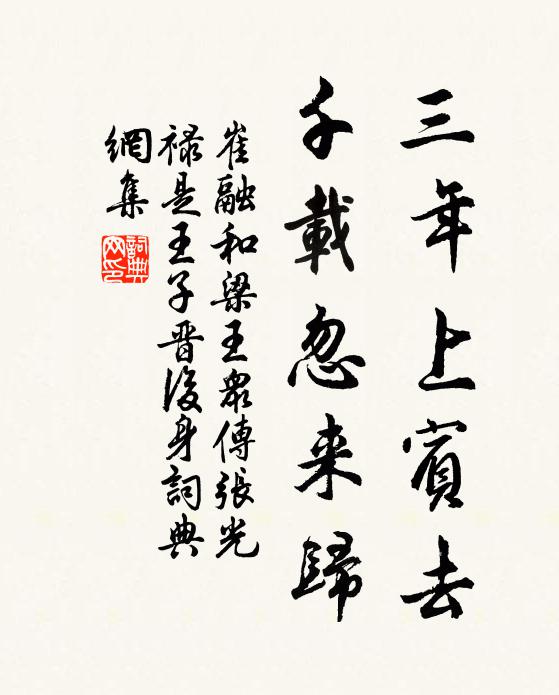 三年上賓去
千載忽来歸
崔融和梁王衆傳張光
禄是王子晋後身詞典
網集
詞典网印